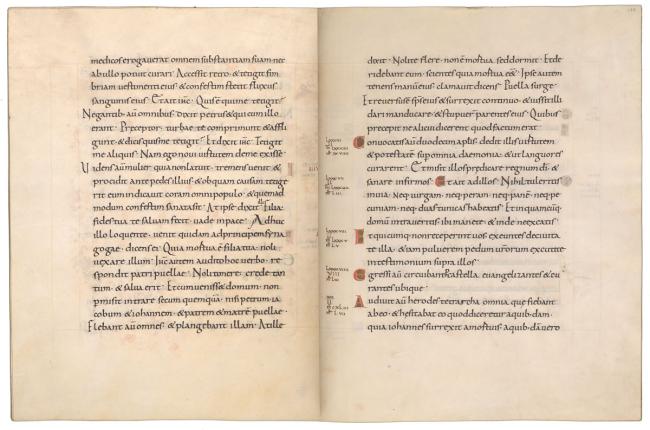 medicos erogaverat omnem substantiam suam nec
ab ullo potuit curari Accessit retro · & tetigit fim
briam vestimenti eius & confestim stetit fluxus
sanguinis eius · Et ait ihc · Quis ē qui me tetigit
Negantib; aū omnibus · dixit petrus & qui cum illo
erant · Preceptor turbae te comprimunt & affli
gunt & dicis quis me tetigit · Et dixit ihc · Tetigit
me aliquis · Nam ego novi virtutem de me exisse ·
Videns aū mulier quia non latuit · tremens venit &
procidit ante pedes illius & ob quam causam tetige
rit eum indicavit coram omni populo & quemad
modum confestim sanata sit · At ipse dixit illi Filia
fides tua te salvam fecit · vade in pace · Adhuc
illo loquente · venit quidam ad principem syna
gogae · dicens ei · Quia mortua ē filia tua · noli
vexare illum · Ihc autem audito hoc verbo · re
spondit patri puellae · Noli timere · crede tan
tum · & salva erit · Et cum venisset domum · non
permisit intrare secum quemquā · nisi petrum · ia
cobum & iohannem · & patrem & matrē puellae ·
Flebant aū omnes & plangebant illam · At ille
dixit · Nolite flere · non ē mortua sed dormit · Et de
ridebant eum · scientes quia mortua ess& · Ipse autem
tenens manū eius clamavit dicens · Puella surge ·
Et reversus ē sps eius & surrexit continuo · & iussit illi
dari manducare & stupuer parentes eius · Quibus
precepit ne alicui dicerent quod factum erat
Convocatis aū duodecim aplis · dedit illis virtutem
& potestatē super omnia daemonia · & ut languores
curarent · Et misit illos predicare regnum di · &
sanare infirmos · Et ait ad illos · Nihil tuleritis
in via · Neq; virgam · neq; peram · neq; panē · neq; pe
cuniam · neq; duas tunicas habeatis · Et in quamcūq;
domū intraveritis · ibi manete · & inde ne exeatis ·
Et quicumq; non receperint vos · exeuntes de civita
te illa · & iam pulverem pedum vrorum excutite
in testimonium supra illos ·
Egressi aū circuibant castella · euangelizantes & cu
rantes ubique ·
Audivit aū herodes tetrarcha omnia que fiebant
ab eo · & hesitabat eo quod diceretur a quib;dam ·
quia iohannes surrexit a mortuis a quib;dā vero